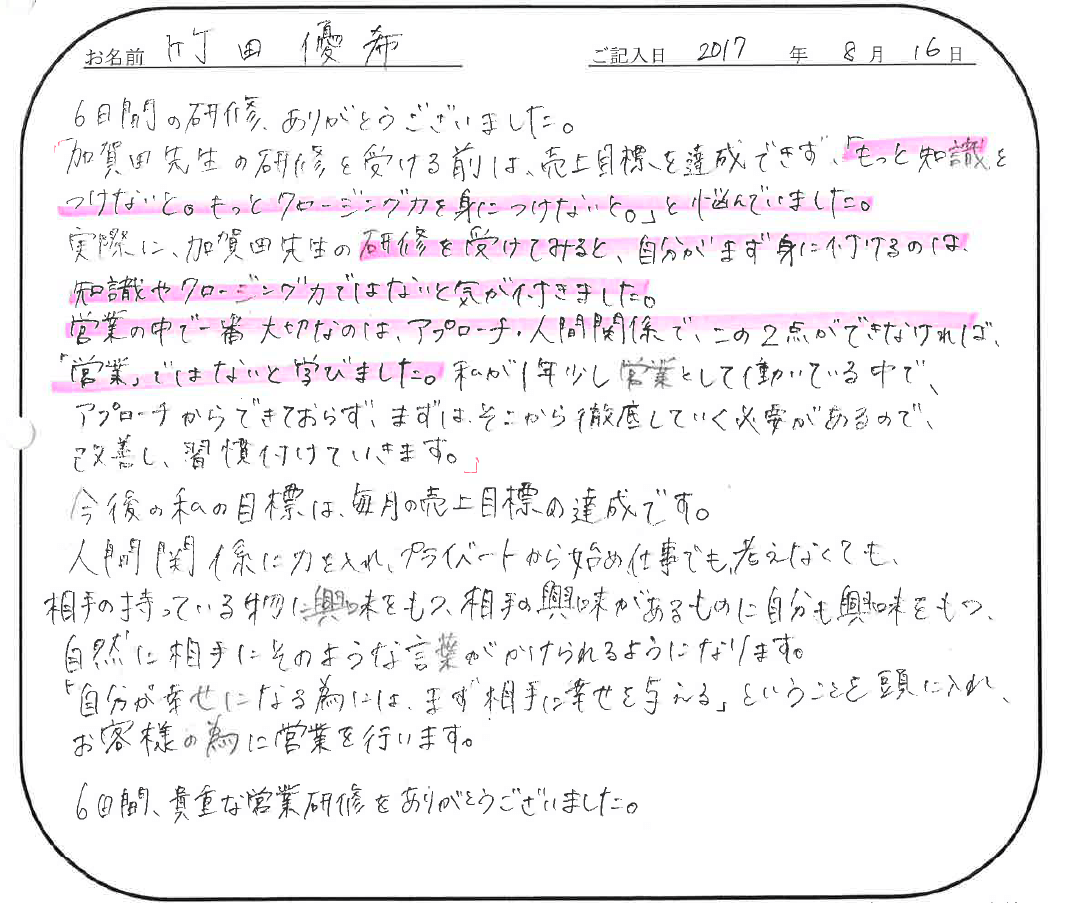 お名前 竹田 優希 ご記入日 2017 年 8 月 16 日
6日間の研修、ありがとうございました。
「加賀田先生の研修を受ける前は、売上目標を達成できず、「もっと知識を
つけないと。もっとクロージング力を身につけないと。」と悩んでいました。
実際に、加賀田先生の研修を受けてみると、自分がまず身に付けるのは、
知識やクロージング力ではないと気が付きました。
営業の中で一番大切なのは、アプローチ・人間関係で、この2点ができなければ、
「営業」ではないと学びました。私が1年少し営業として働いている中で、
アプローチからできておらず、まずは、そこから徹底していく必要があるので、
改善し、習慣付けていきます。」
今後の私の目標は、毎月の売上目標の達成です。
人間関係に力を入れ、プライベートから始め仕事でも、考えなくても、
相手の持っている物に興味をもつ、相手の興味があるものに自分も興味をもつ、
自然に相手にそのような言葉がかけられるようになります。
「自分が幸せになる為には、まず相手に幸せを与える」ということを頭に入れ、
お客様の為に営業を行います。
6日間、貴重な営業研修をありがとうございました。